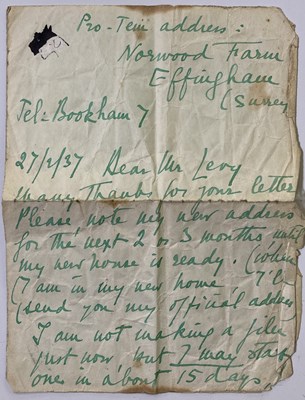 Pro-Tem address:
Norwood Farm
Effingham
(Surrey
Tel: Bookham 7
27/2/37 Dear Mr Levy
many thanks for your letter
Please note my new address
for the next 2 or 3 months until
my new house is ready. (when
(I am in my new home, I'll
(send you my official address
I am not making a film
just now but I may start
one in about 15 days